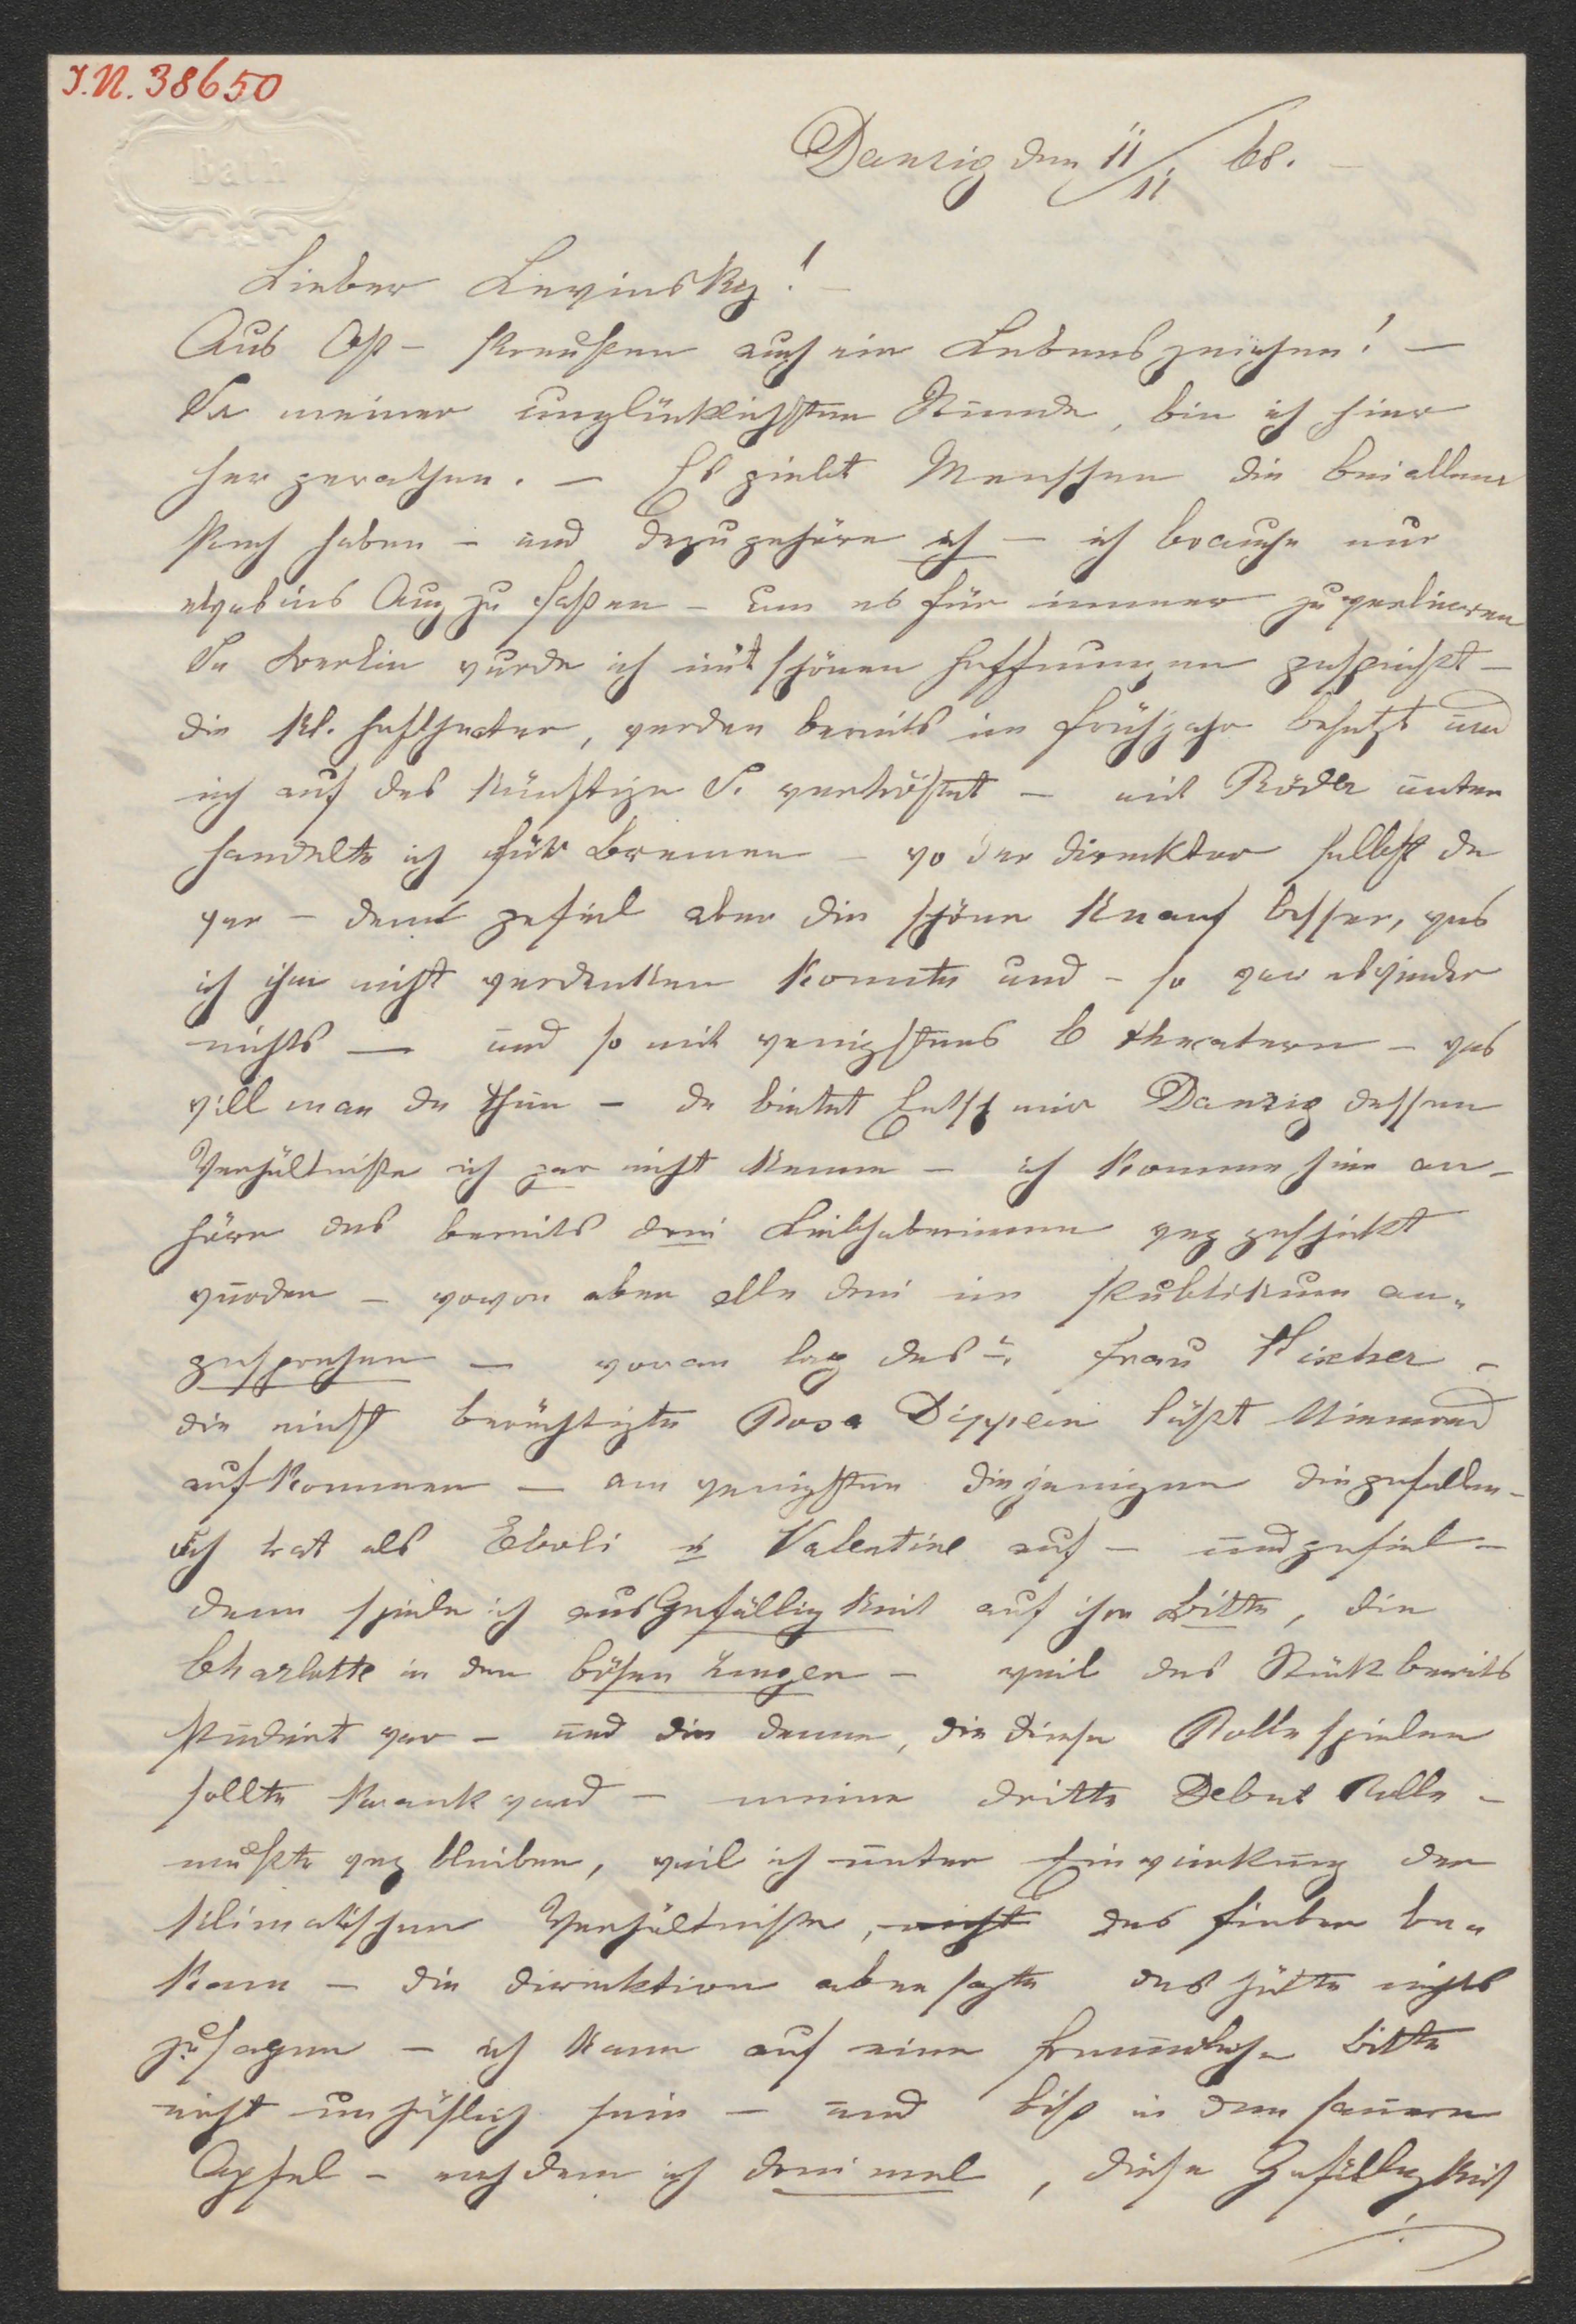 J.N. 38650
Bath
Danzig den 11/11 68. —
Lieber Lewinsky! —
Aus Ost - Preußen auch ein Lebenszeichen! —
In meiner unglücklichsten Stunde, bin ich hier
her gerathen. — Es giebt Menschen die bei allem
Pech haben - und dazu gehöre ich — ich brauche nur
etwas ins Aug zu faßen - um es für immer zu verlieren
In Berlin wurde ich mit schönen Hoffnungen gespeißt -
die kl. Hoftheater, werden bereits im Frühjahr besetzt und
ich auf das künftige J. vertröstet - mit Röder unter
handelte ich für Bremen - wo der Direcktor selbst da
war - dem gefiel aber die schöne Knauf besser, was
ich ihm nicht verdenken konnte und - so war es wieder
nichts — und so mit wenigstens 6 theatern - was
will man da thun - da bietet Entsch mir Danzig dessen
Verhältniße ich gar nicht kenne - ich komme hier an -
höre das bereits drei Liebhaberinnen weg geschickt
wurden - wovon aber alle drei im Publikum an„
gesprochen — woran lag das? Frau Fischer -
die einst berüchtigte Rosa Dipplein läßt Niemand
aufkommen — am wenigsten diejenigen die gefallen -
Ich trat als Eboli u Valentine auf - und gefiel -
dann spiele ich aus Gefälligkeit auf ihre Bitte, die
Charlotte in den bösen Zungen - weil das Stück bereits
studiert war - und die Dame, die diese Rolle spielen
sollte krank ward - meine dritte Debut Rolle -
mußte weg bleiben, weil ich unter Einwirkung der
klimatischen Verhältniße, nicht das Fieber be„
kam - die Direcktion aber sagte das hätte nichts
zu sagen - ich kann auf eine freundliche Bitte
nicht unhöflich sein - und biß in den sauern
Apfel - nachdem ich drei mal, diese Gefälligkeit